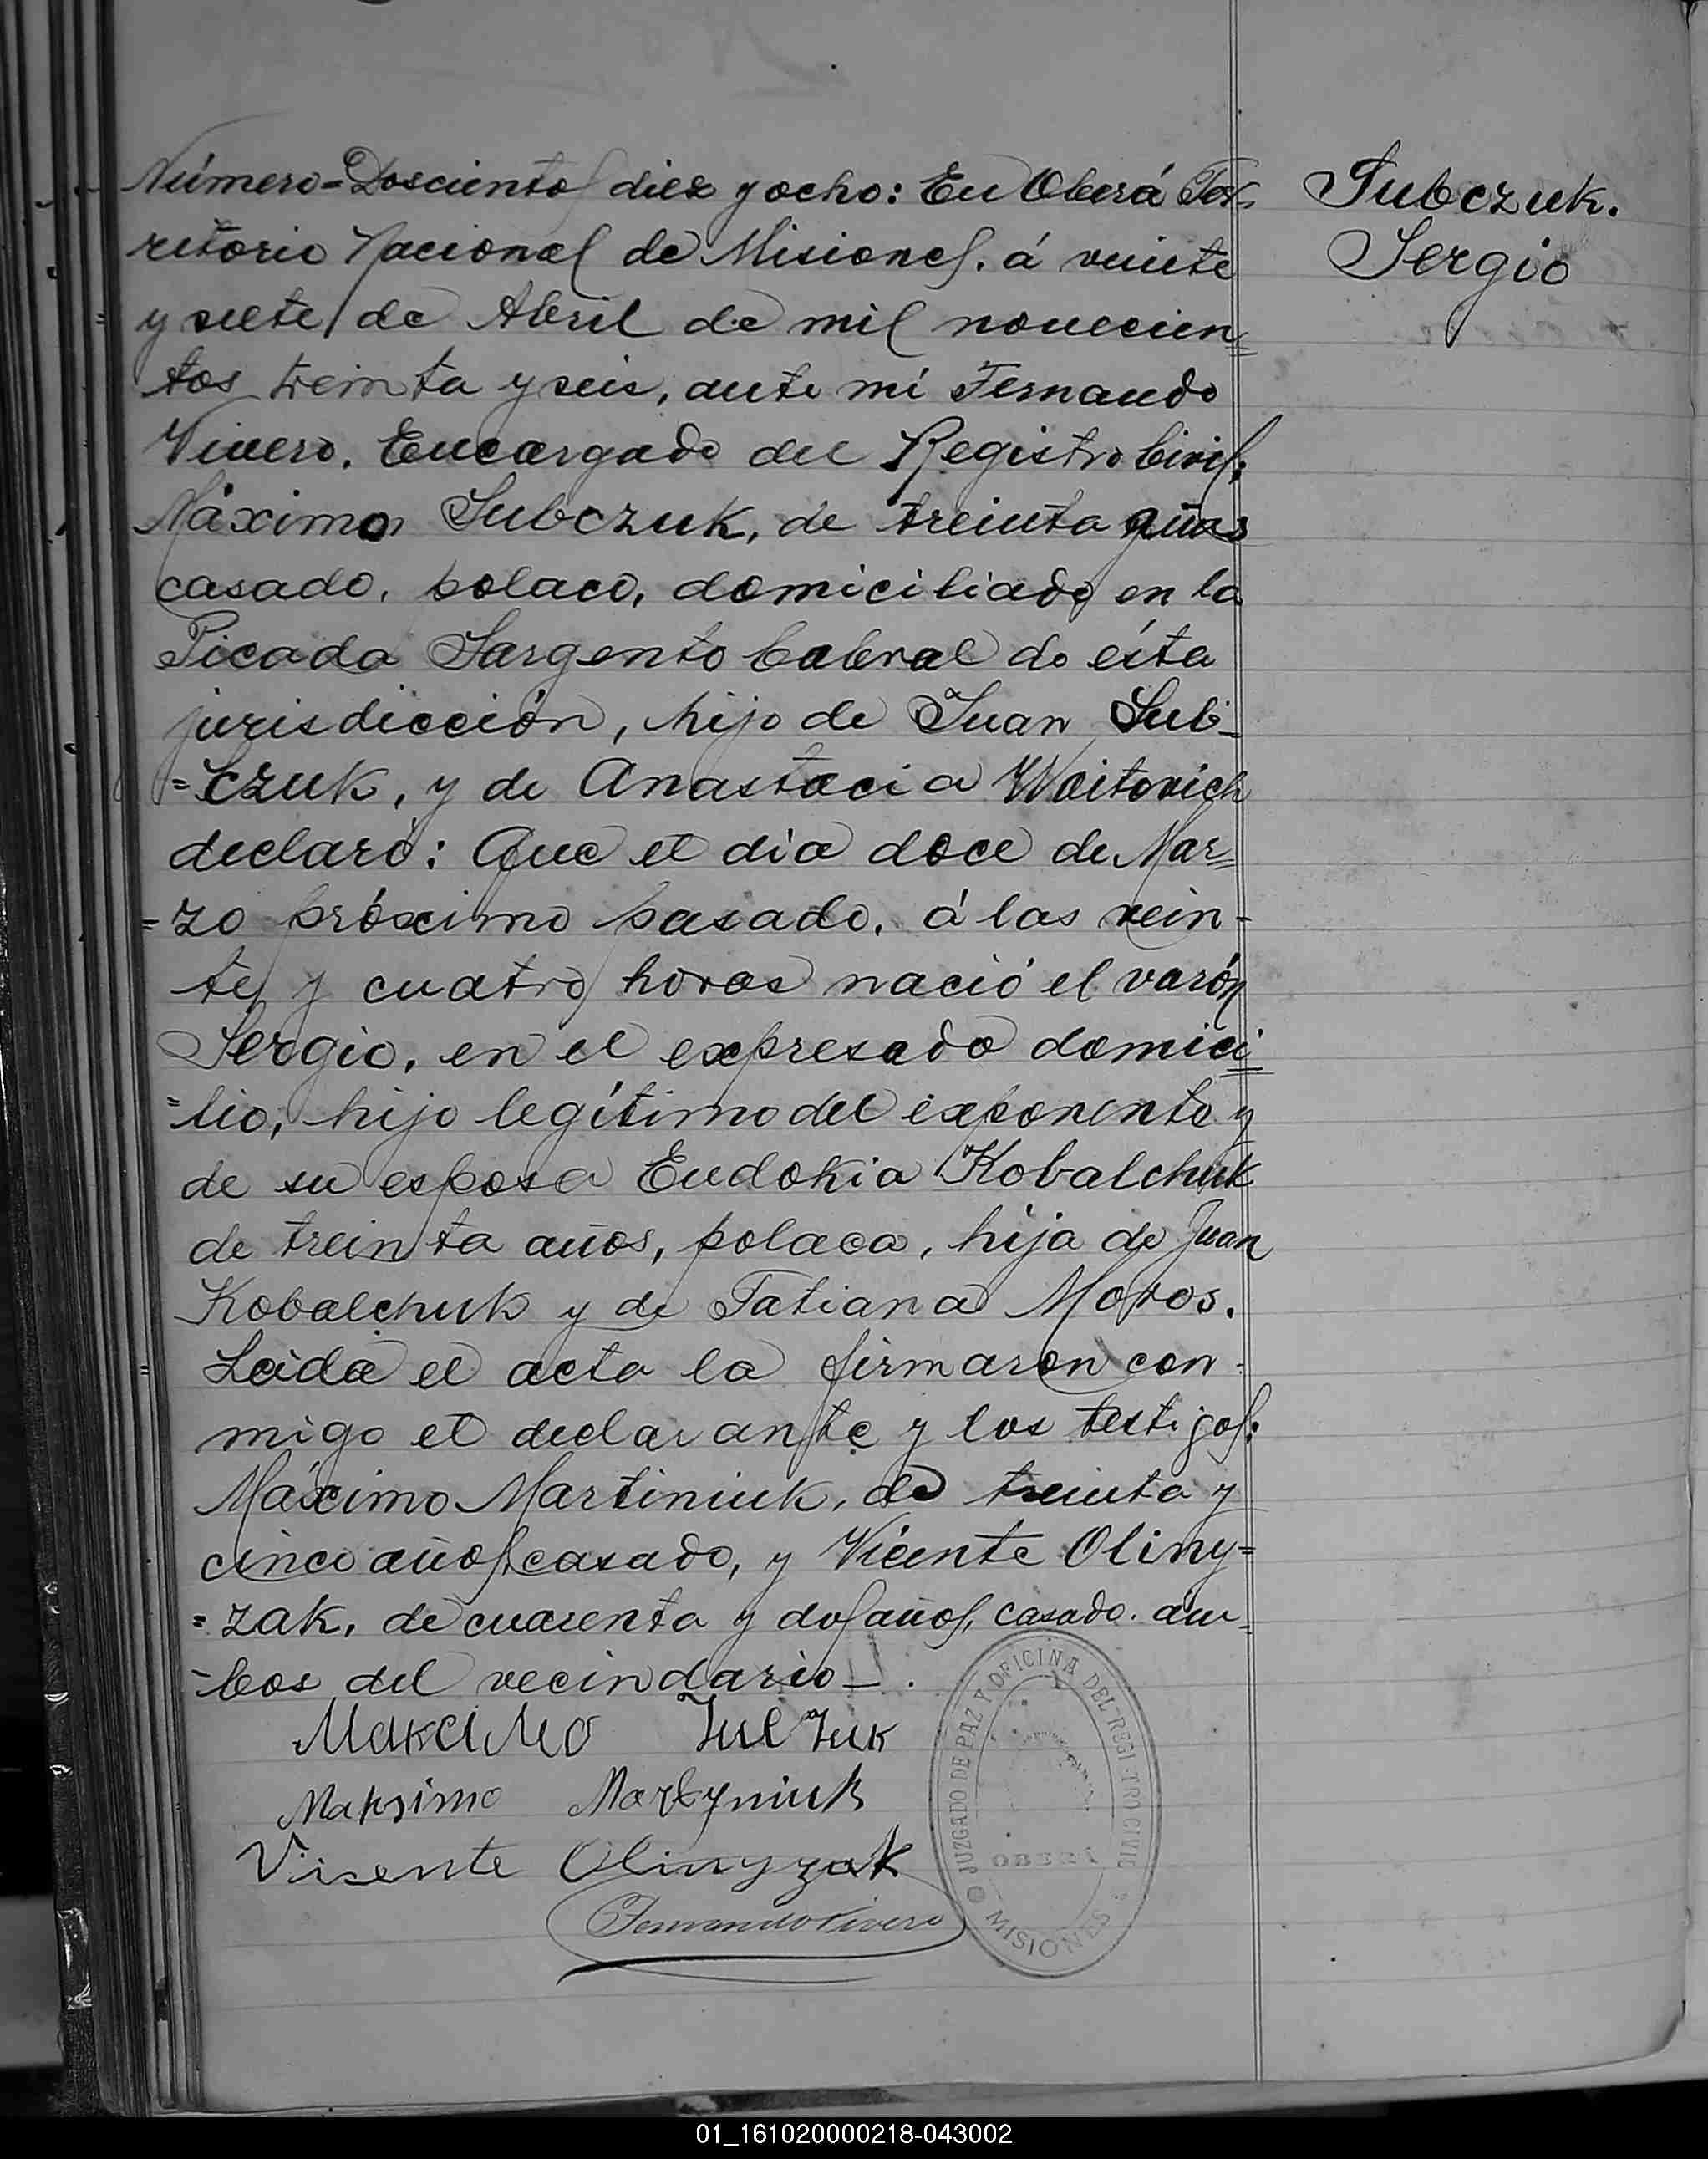 Número=Doscientos diez y ocho: En Oberá Ter-
ritorio Nacional de Misiones. á veinte
y siete de Abril de mil novecien=
tos treinta y seis, ante mí Fernando
Vivero, Encargado del Registro Civil;
Máximo Subczuk, de treinta años
casado, polaco, domiciliado en la
Picada Sargento Cabral de ésta
jurisdicción, hijo de Juan Sub-
=czuk, y de Anastacia Woitovich
declaró: Que el día doce de Mar=
=zo próximo pasado, á las vein-
te y cuatro horas nació el varón
Sergio, en el expresado domici=
=lio, hijo legítimo del exponente y
de su esposa Eudokia Kobalchuk
de treinta años, polaca, hija de Juan
Kobalchuk y de Tatiana Moros.
Leida el acta la firmaron con-
migo el declarante y los testigos:
Máximo Martiniuk, de treinta y
cinco años, casado, y Vicente Oliny=
=zak, de cuarenta y dos años, casado. am-
-bos del vecindario—.
Subczuk.
Sergio
Максимо
Maksimo Martyniuk
Visente Olinyzak
Fernando Vivero
JUZGADO DE PAZ Y OFICINA DEL REGISTRO CIVIL
OBERÁ
MISIONES
01_161020000218-043002